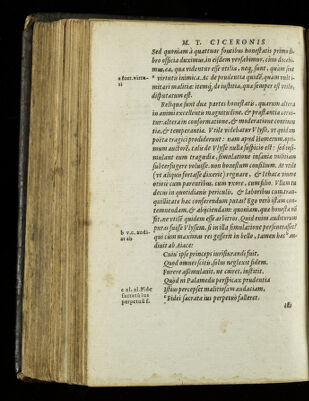 M. T. CICERONIS
Sed quoniam à quattuor fontibus honestatis primo li-
bro officia duximus, in eisdem versabimur, cùm docebi-
mus, ea, quæ videntur esse vtilia, neq; sunt, quàm sint
virtutis inimica. Ac de prudentia quidē, quam vult i-
mitari malitia: itemq́; de iustitia, quæ semper est vtilis,
disputatum est.
Reliquæ sunt duæ partes honestatis, quarum altera
in animi excellentis magnitudine, & præstantia cerni-
tur: altera in conformatione, & moderatione continen
tiæ, & temperantiæ. Vtile videbatur Vlyssi, vt quidam
poetæ tragici prodiderunt: nam apud Homerum, opti-
mum auctorē, talis de Vlysse nulla suspicio est: sed insi-
mulant eum tragœdiæ, simulatione insaniæ militiam
subterfugere voluisse. non honestum consilium. at vtile
(vt aliquis fortasse dixerit) regnare, & Ithacæ viuere
otiosè cum parentibus, cum vxore, cum filio. Vllum tu
decus in quotidianis periculis, & laboribus cum tran-
quillitate hac conferendum putas? Ego verò istam con-
temnendam, & abijciendam: quoniam, quæ honesta nō
sit, ne vtilē quidem esse arbitror. Quid enim auditurum
putas fuisse Vlyssem, si in illa simulatione perseuerasset?
qui cùm maximas res gesserit in bello, tamen hæc an-
diuit ab Aiace:
Cuius ipse princeps iurisiurandi fuit,
Quod omnes scitis, solus neglexit fidem.
Furere assimulauit, ne coiret, institit.
Quòd ni Palamedis perspicax prudentia
Istius percepset malitiosam audaciam,
Fidei sacratæ ius perpetuò falleret.
a fort. virtu-
ti
b v.c. audi-
at ab
c al. al. Fide
sacratæ ius
perpetuò f.